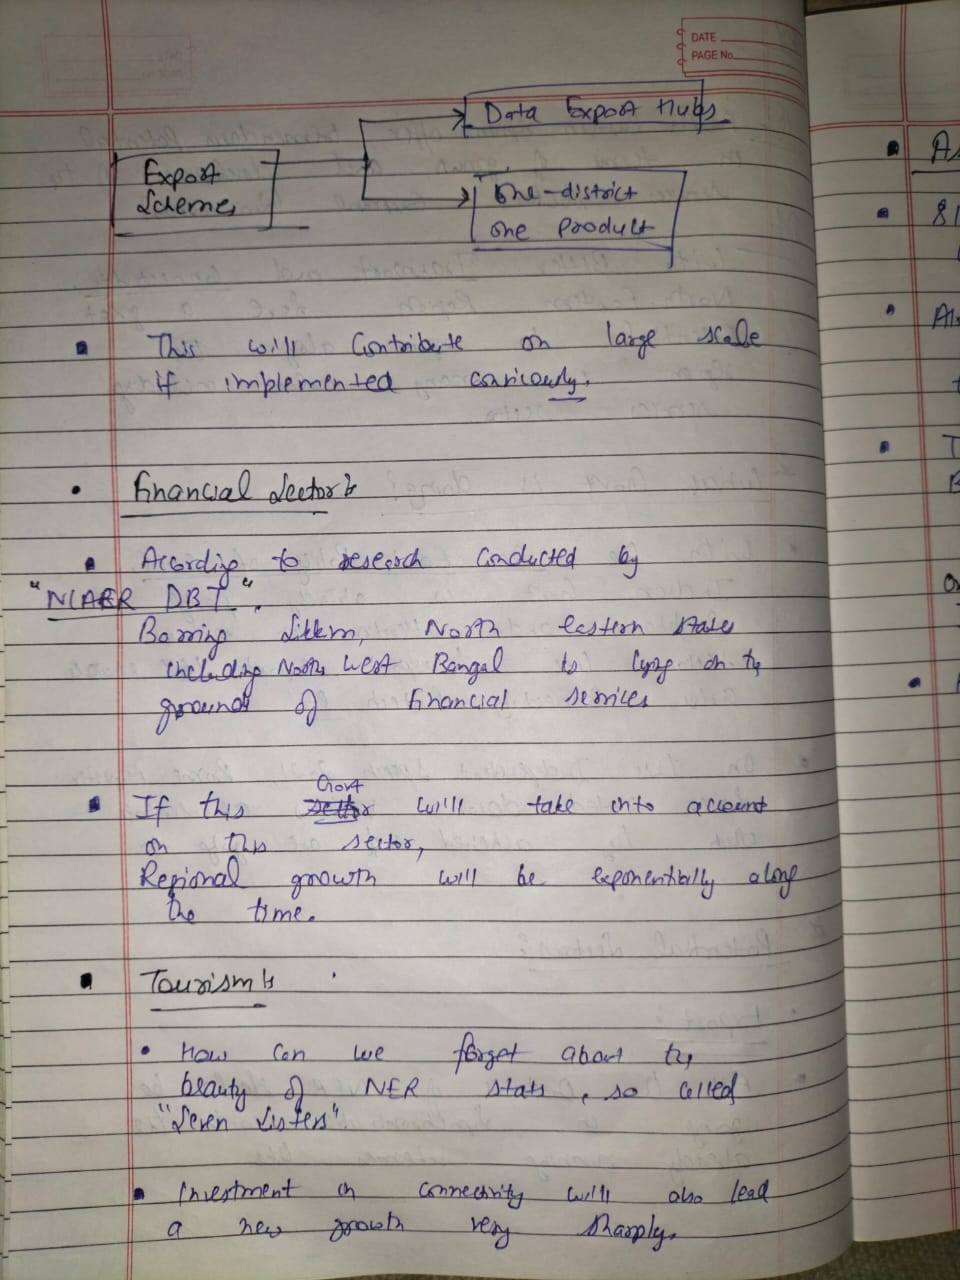 DATE
PAGE No.
Data Export Hubs
Export
Schemes
One-district
One Product
This will Contribute on large scale
If implemented couriously.
Financial Sector :-
According to research Conducted by
"NCAER DBT".
Barring Sikkm, North Eastern States
including North West Bangal is lying on the
grounds of financial services
Govt
If this will take into account
on this sector,
Regional growth will be exponentially along
the time.
Tourism :-
How Can we forget about the
beauty of NER stats, so called
"Seven Sisters"
Investment in connectivity will also lead
a new growth very sharply.
As
81
Als
T
B